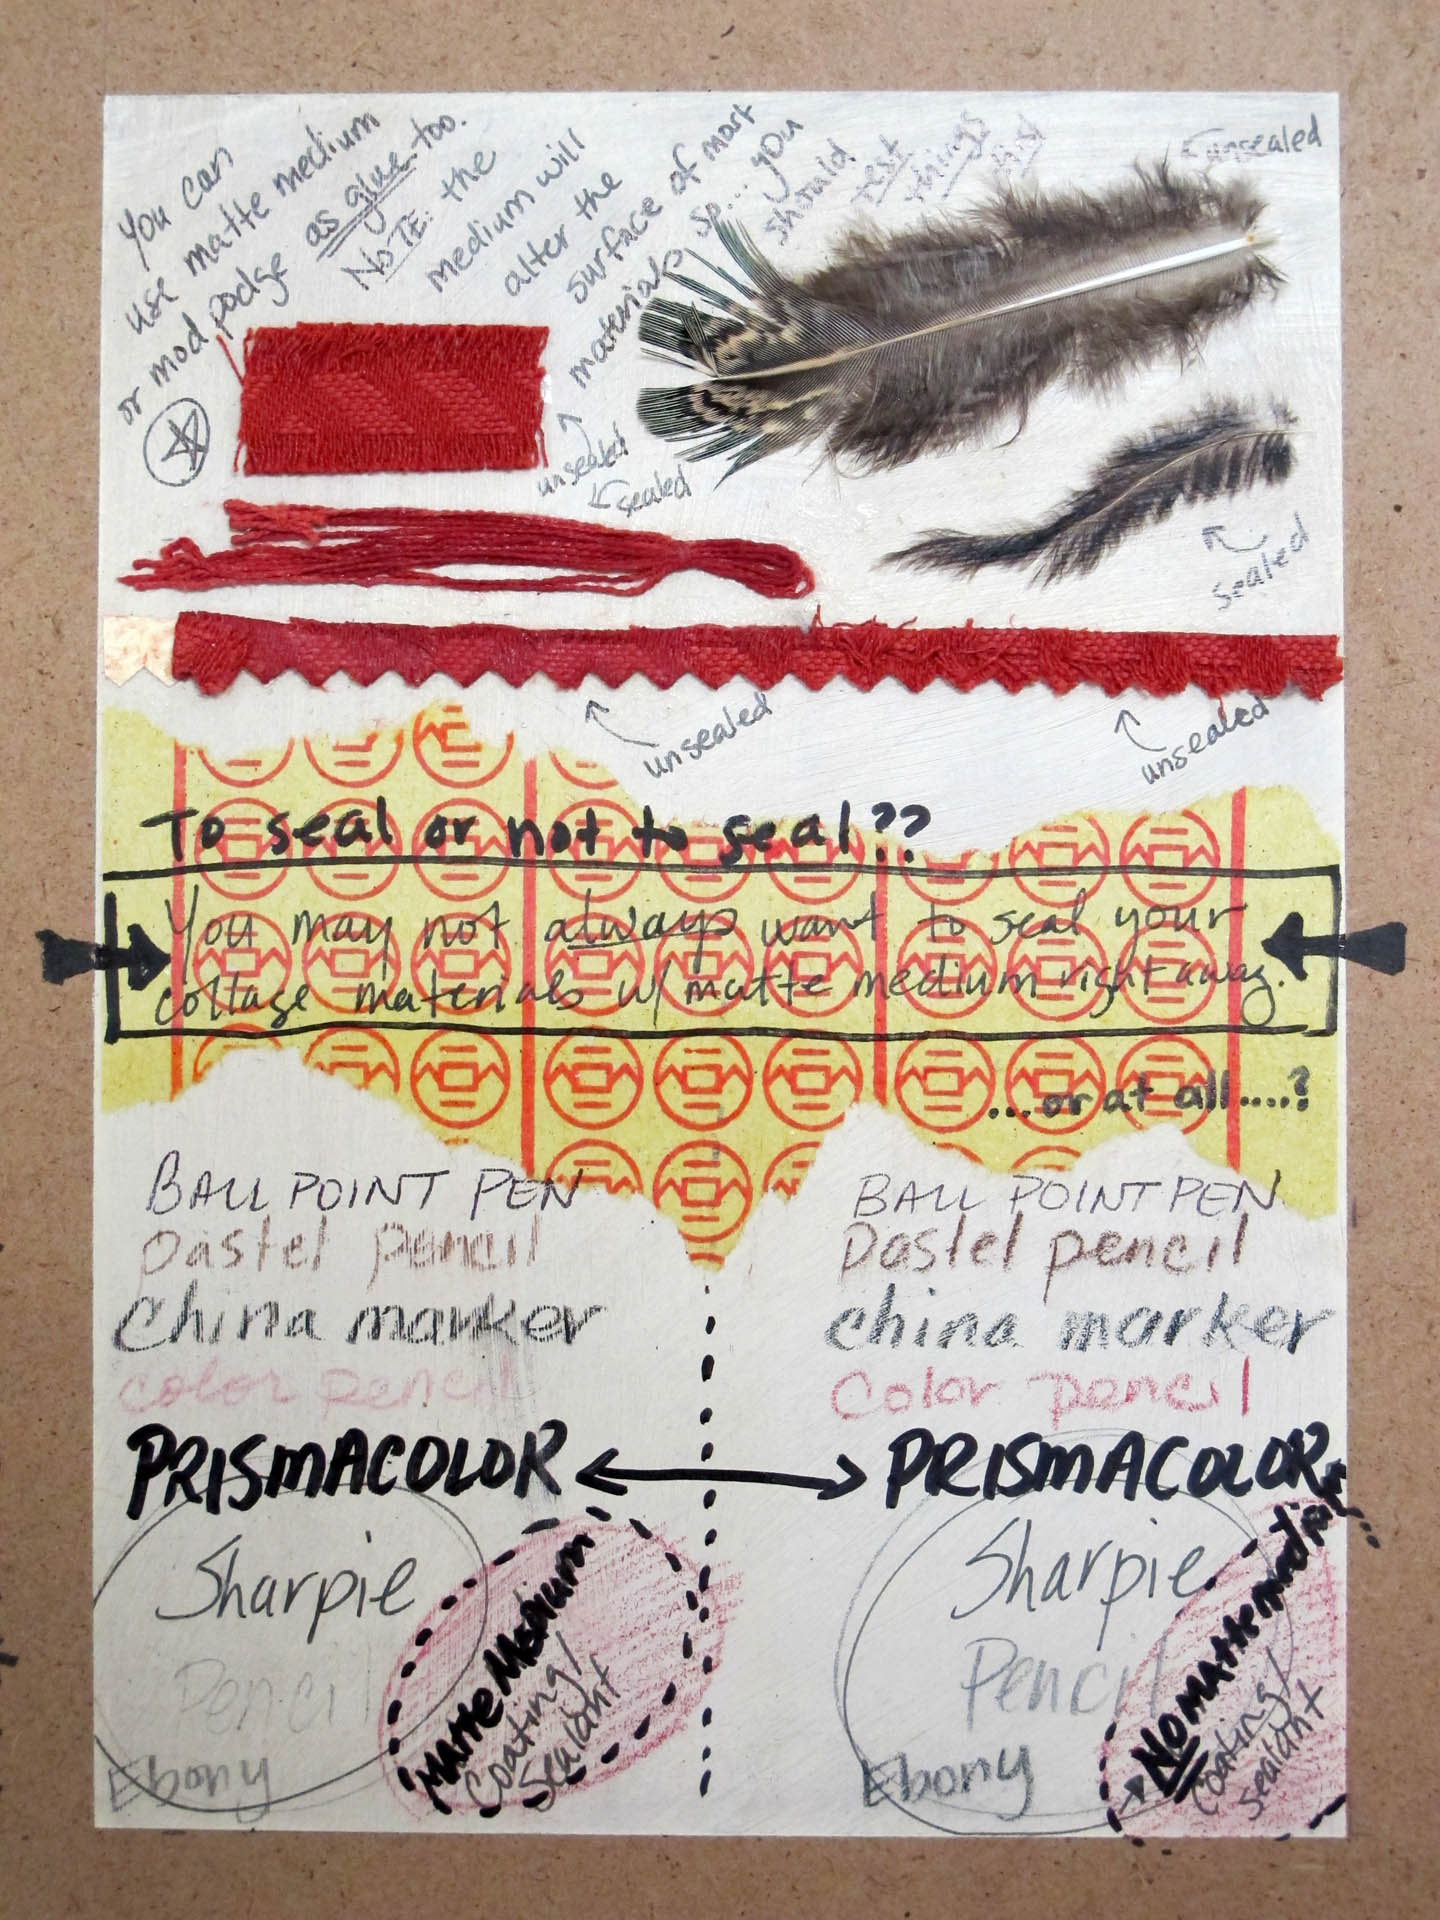 You can
use matte medium
or mod podge as glue too.
NOTE: the
medium will
alter the
surface of most
materials so... you
should
test
things
first
unsealed
unsealed
sealed
sealed
unsealed
unsealed
To seal or not to seal??
You may not always want to seal your
collage materials w/ matte medium right away.
...or at all....?
BALL POINT PEN
pastel pencil
China marker
color pencil
PRISMACOLOR
Sharpie
Pencil
Ebony
Matte Medium
Coating/
Sealant
BALL POINT PEN
Pastel pencil
china marker
Color pencil
PRISMACOLOR
Sharpie
Pencil
Ebony
NO matte medium
Coating/
sealant